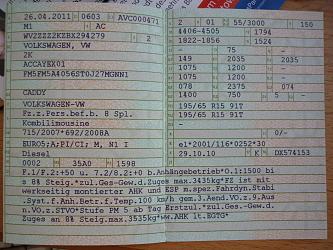 26.04.2011 0603 AVC000471
M1 AC
WVZZZZ2KZBX294279 2
VOLKSWAGEN, VW
2K
ACCAYEX01
FM5FM5A4056ST0J27MGNN1
CADDY
VOLKSWAGEN-VW
Fz.z.Pers.bef.b. 8 Spl.
Kombilimousine
715/2007*692/2008A
EURO5;A;PI/CI; M, N1 I
Diesel
0002 35A0 1598
2 01 55/3000 150
4406-4505 1794
1822-1856 1524
- 75 -
149 2035 2035
1075 1200 -
1075 1200 -
078 2375 074
1400 750 5 -
195/65 R15 91T
195/65 R15 91T
-
- 0/-
e1*2001/116*0252*30
29.10.10 K DX574153
F.1/F.2:+50 u. 7.2/8.2:+0 b.Anhängebetrieb*O.1:1500 bi
s 8% Steig.*zul.Ges-Gew.d.Zuges max.3435kg*FZ ist mit
werkseitig montierter AHK und ESP m.spez.Fahrdyn.Stabi
.Syst.f.Anh.Betr.f.Temp.100 km/h gem.3.Aend.VO.z.9.Aus
n.VO.z.STVO*Stufe PM 5 ab Tag Erstzul.*zul.Ges-Gew.d.
Zuges an 8% Steig.max.3535kg*ww.AHK lt.EGTG*